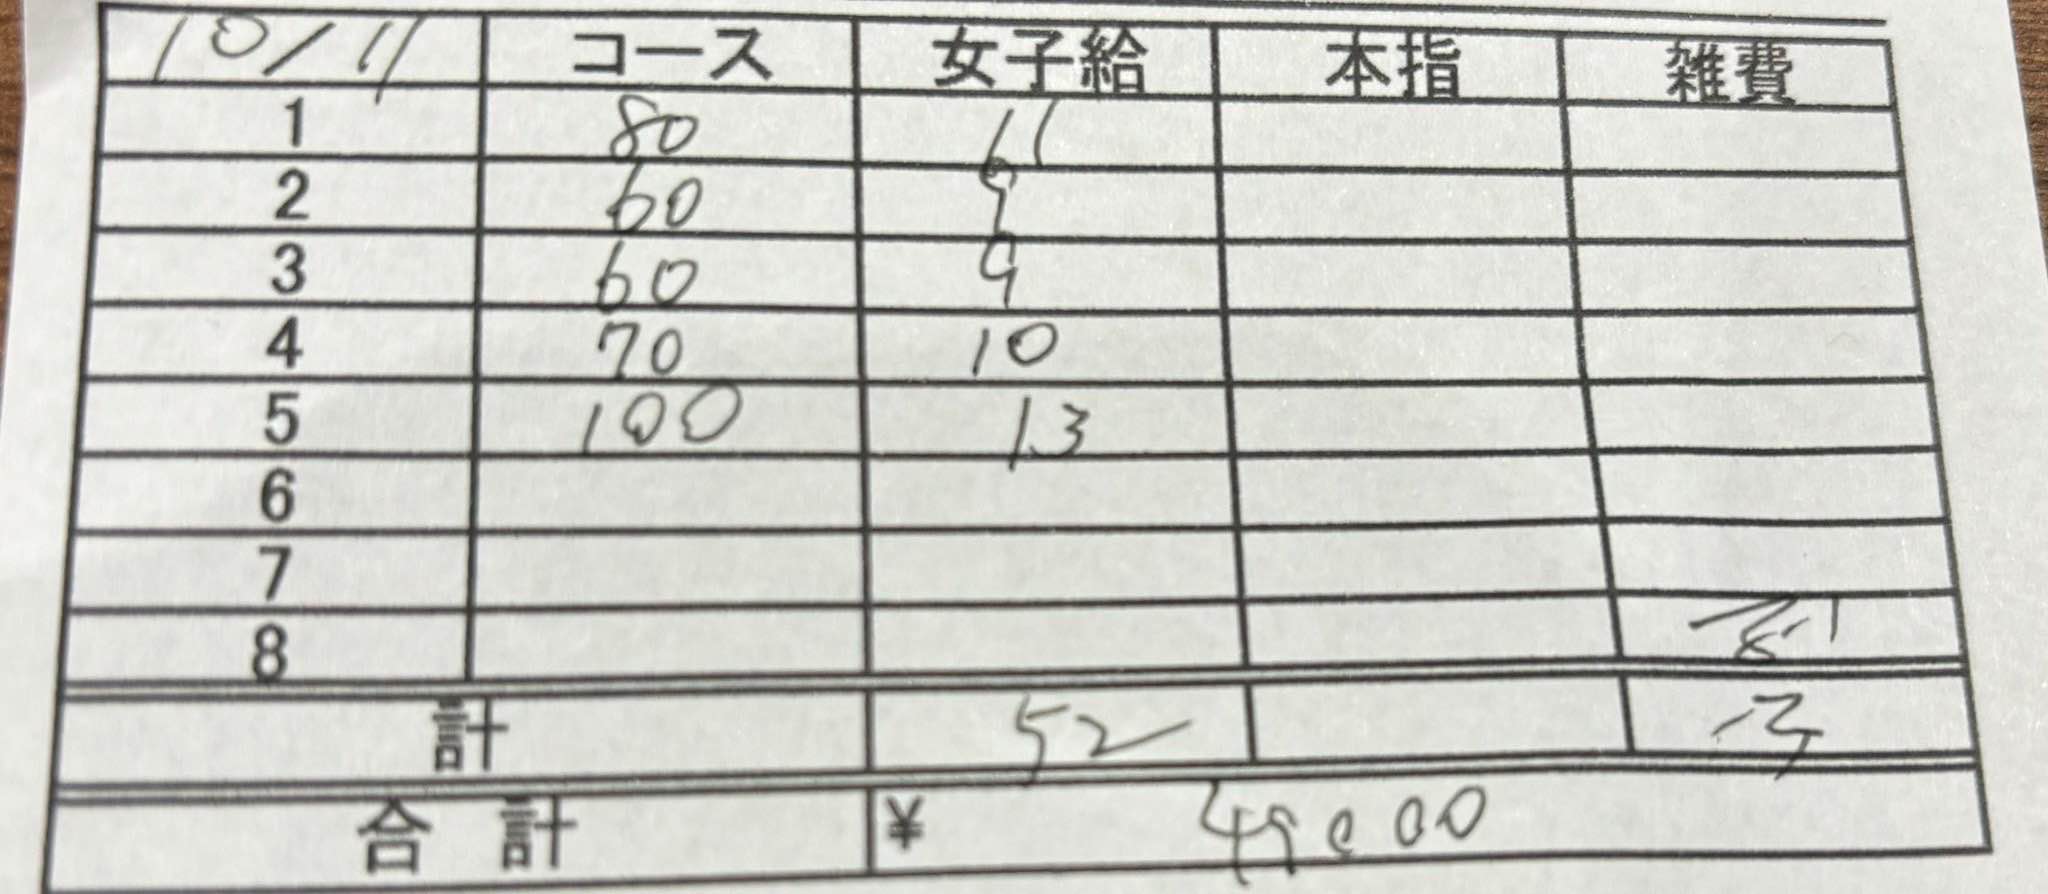 10/11 コース 女子給 本指 雑費
1 80 11
2 60 9
3 60 9
4 70 10
5 100 13
6
7
8
計 52 -3
合計 ¥ 49000